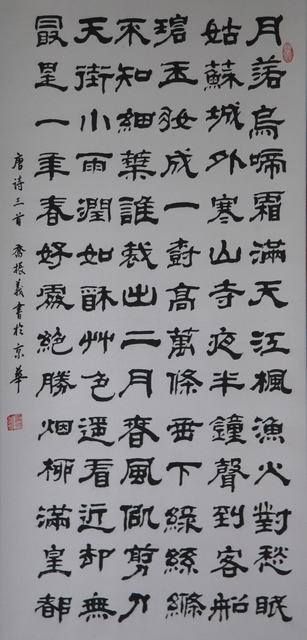 月落烏啼霜滿天江楓漁火對愁眠
姑蘇城外寒山寺夜半鐘聲到客船
碧玉妝成一樹高萬條垂下綠絲縧
不知細葉誰裁出二月春風似剪刀
天街小雨潤如酥艸色遥看近却無
最是一年春好處絕勝烟柳滿皇都
唐诗三首 喬振義書於京華